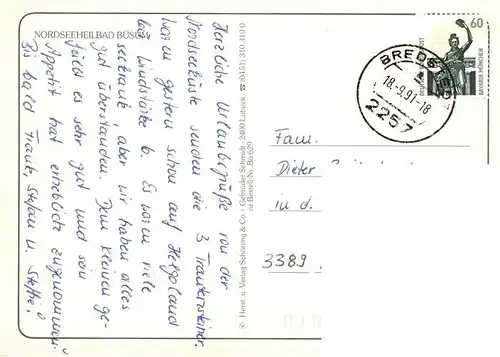 NORDSEEHEILBAD BÜSUM
Herzliche Urlaubsgrüße von der
Nordseeküste senden die 3 Trauntensteiner.
Waren gestern schon auf Helgoland
bei Windstärke 6. Es waren viele
seekrank, aber wir haben alles
gut überstanden. Dem Kleinen ge-
fällt es sehr gut und sein
Appetit hat erheblich zugenommen.
Bis bald Frank, Stefan u. Steffi!
© Herst. u. Verlag Schöning & Co. + Gebrüder Schmidt · 2400 Lübeck · ☎ (0451) 310 310 0
Bestell-Nr.
BREDST
18.-9.91-18
2257
60
DEUTSCHE BUNDESPOST
BAVARIA MÜNCHEN
Fam.
Dieter
in d.
3389